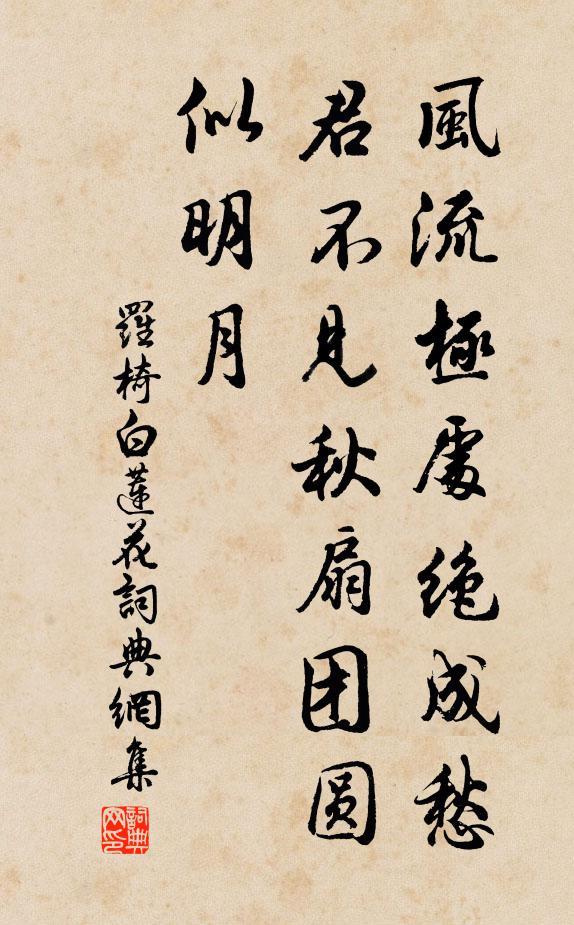 風流極處絶成愁
君不见秋扇团圆
似明月
羅椅白蓮花詞典網集
詞典
网印